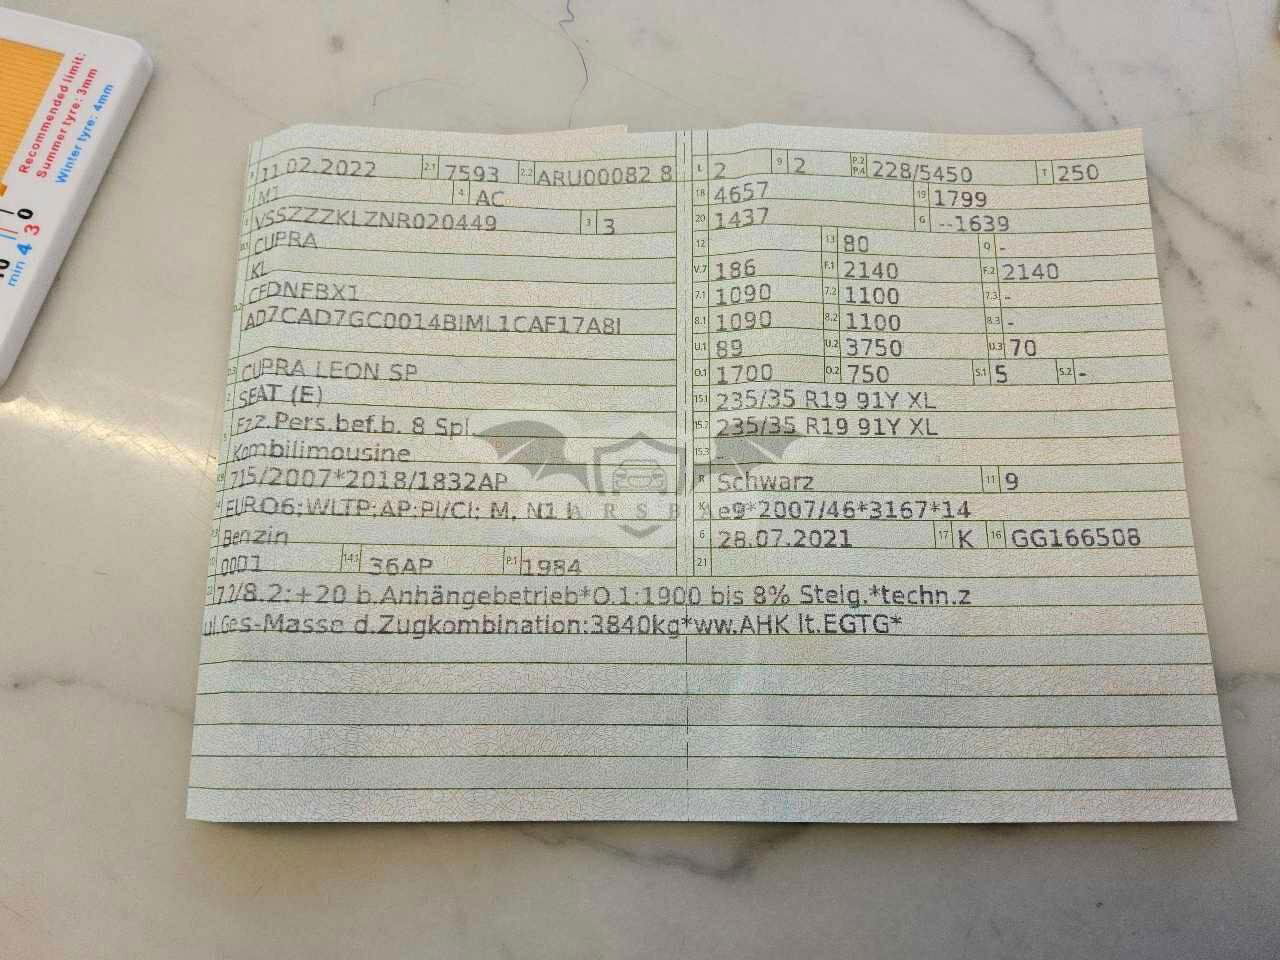 Recommended limit:
Summer tyre: 3mm
Winter tyre: 4mm
min 4 3 0
11.02.2022 2.1 7593 2.2 ARU00082 8
M1 4 AC
VSSZZZKLZNR020449 3 3
CUPRA
KL
CFDNFBX1
AD7CAD7GC0014BIML1CAF17A8I
CUPRA LEON SP
2 SEAT (E)
Fzz.Pers.bef.b. 8 Spl.
Kombilimousine
715/2007*2018/1832AP
EURO6;WLTP;AP;PI/CI; M, N1 I
Benzin
0001 14.1 36AP P.1 1984
L 2 9 2 P.2 P.4 228/5450 T 250
18 4657 19 1799
20 1437 G --1639
12 13 80 Q -
V.7 186 F.1 2140 F.2 2140
7.1 1090 7.2 1100 7.3 -
8.1 1090 8.2 1100 8.3 -
U.1 89 U.2 3750 U.3 70
O.1 1700 O.2 750 S.1 5 S.2 -
15.1 235/35 R19 91Y XL
15.2 235/35 R19 91Y XL
15.3 -
R Schwarz 11 9
K e9*2007/46*3167*14
6 28.07.2021 17 K 16 GG166508
21
7.2/8.2:+20 b.Anhängebetrieb*O.1:1900 bis 8% Steig.*techn.z
ul.Ges-Masse d.Zugkombination:3840kg*ww.AHK lt.EGTG*
ARSB